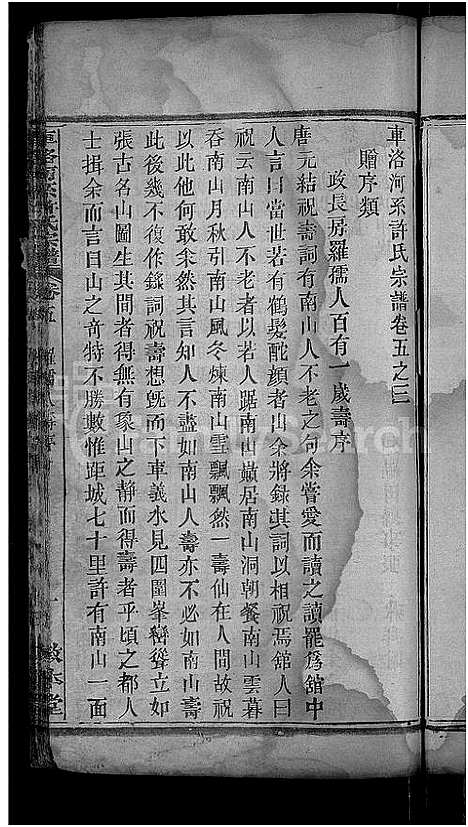 車洛河系許氏宗譜卷五之三
贈序類
政長房羅孺人百有一歲壽序
唐元結祝壽詞有南山人不老之句余嘗愛而讀之讀罷爲舘中
人言曰當世若有鶴髮酡顔者出余將錄其詞以相祝焉舘人曰
祝云南山人不老者以若人踞南山巔居南山洞朝餐南山雲暮
吞南山月秋引南山風冬煉南山雪飄飄然一壽仙在人間故祝
以此他何敢余然其言知人不盡如南山人壽亦不必如南山壽
此後幾不復作錄詞祝壽想旣而下車義水見四圍峯辮聳立如
張古名山圖生其間者得無有象山之靜而得壽者乎頃之都人
士揖余而言曰山之奇特不勝數惟距城七十里許有南山一面
車洛河系許氏宗譜 卷五
一
敦本堂